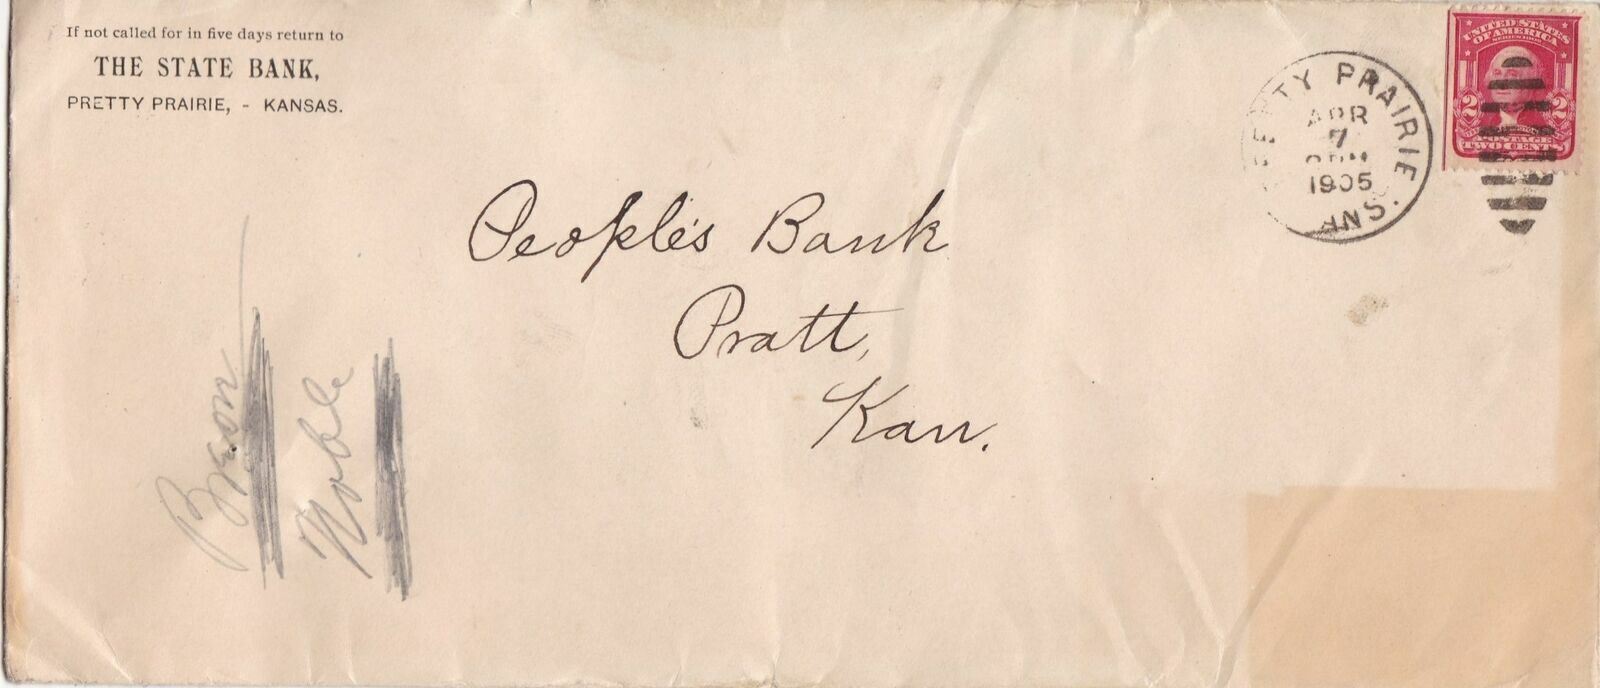 If not called for in five days return to
THE STATE BANK,
PRETTY PRAIRIE, - KANSAS.
PRAIRIE
APR
7
1905
UNITED STATES
OF AMERICA
2 2
TWO CENTS
People's Bank
Pratt,
Kan.
Noble